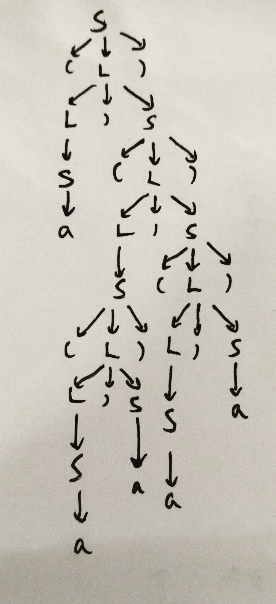 S
( L )
L , S
S ( L )
a L , S
S ( L )
( L ) L , S
L , S S a
S a a
a